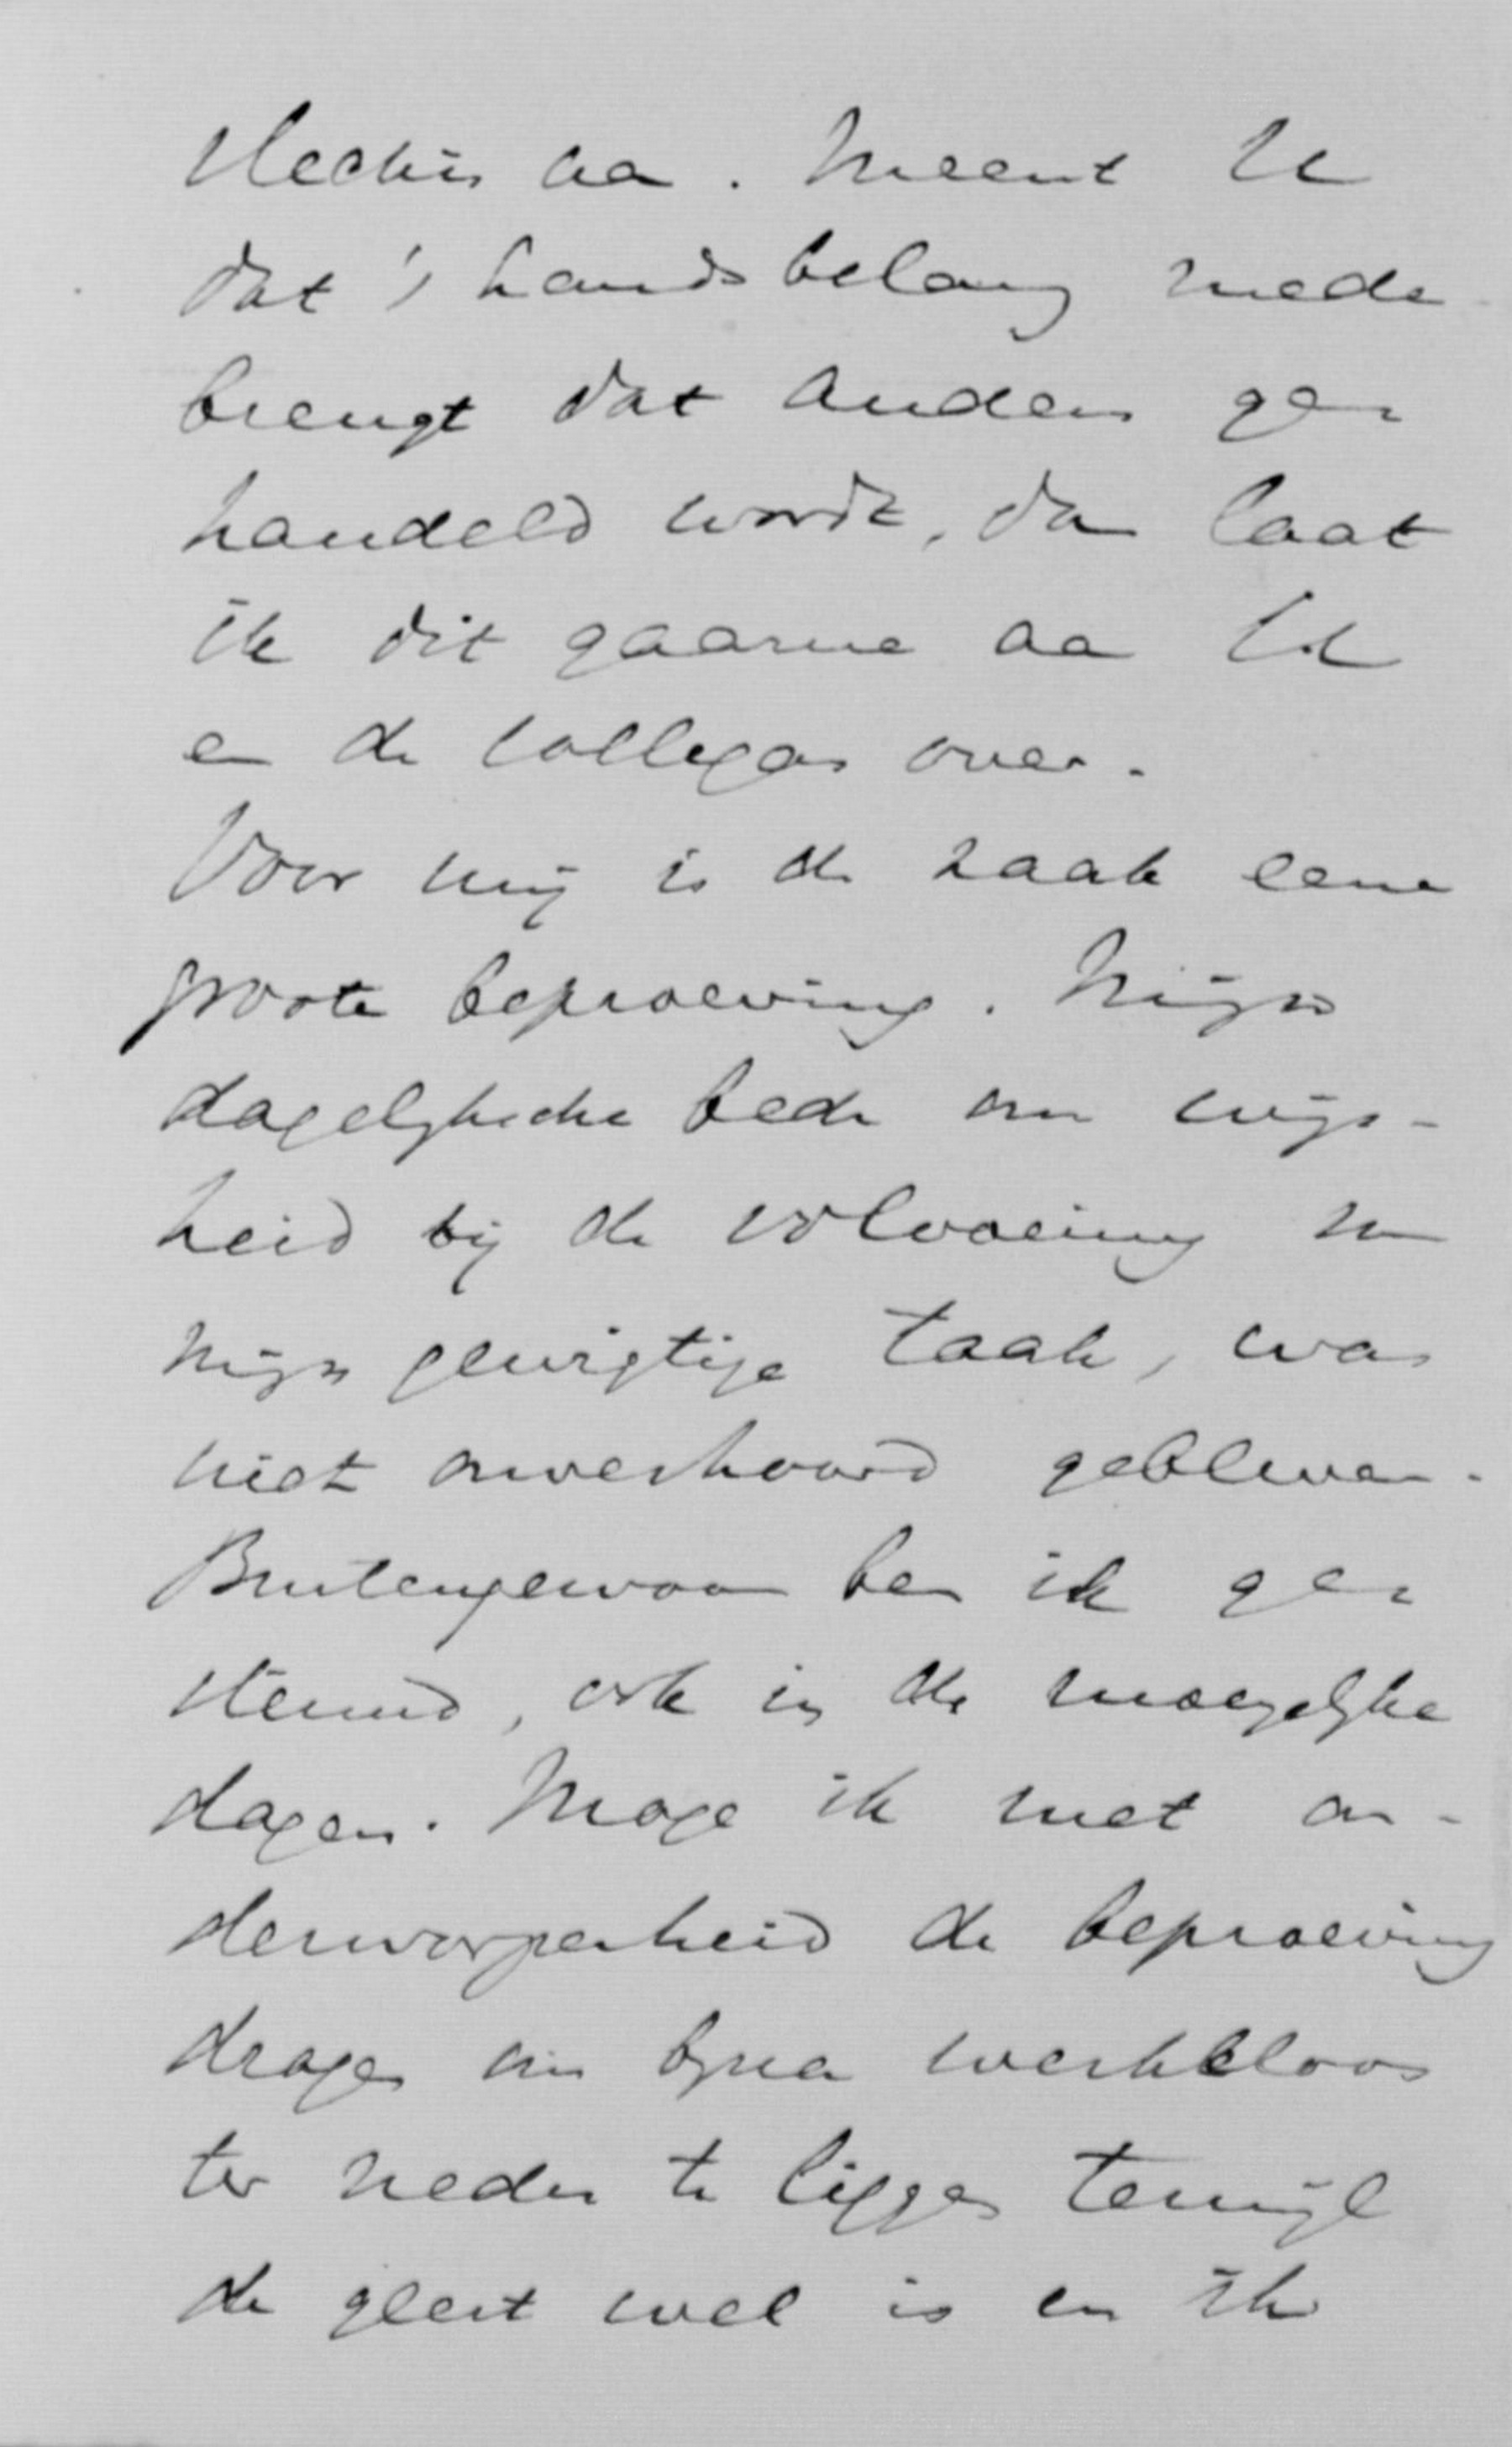 slechts aan. Meent U
dat 's Lands belang mede
brengt dat anders ge-
handeld wordt, dan laat
ik dit gaarne aan U
en de collegas over.
Voor mij is de zaak eene
groote beproeving. Mijn
dagelijksche bede om wijs-
heid bij de volvoering van
mijn gewigtige taak, was
niet onverhoord gebleven.
Buitengewoon ben ik ge-
steund, ook in de moeijelijke
dagen. Moge ik met on-
derworpenheid de beproeving
dragen om bijna werkeloos
ter neder te liggen terwijl
de geest wel is en ik